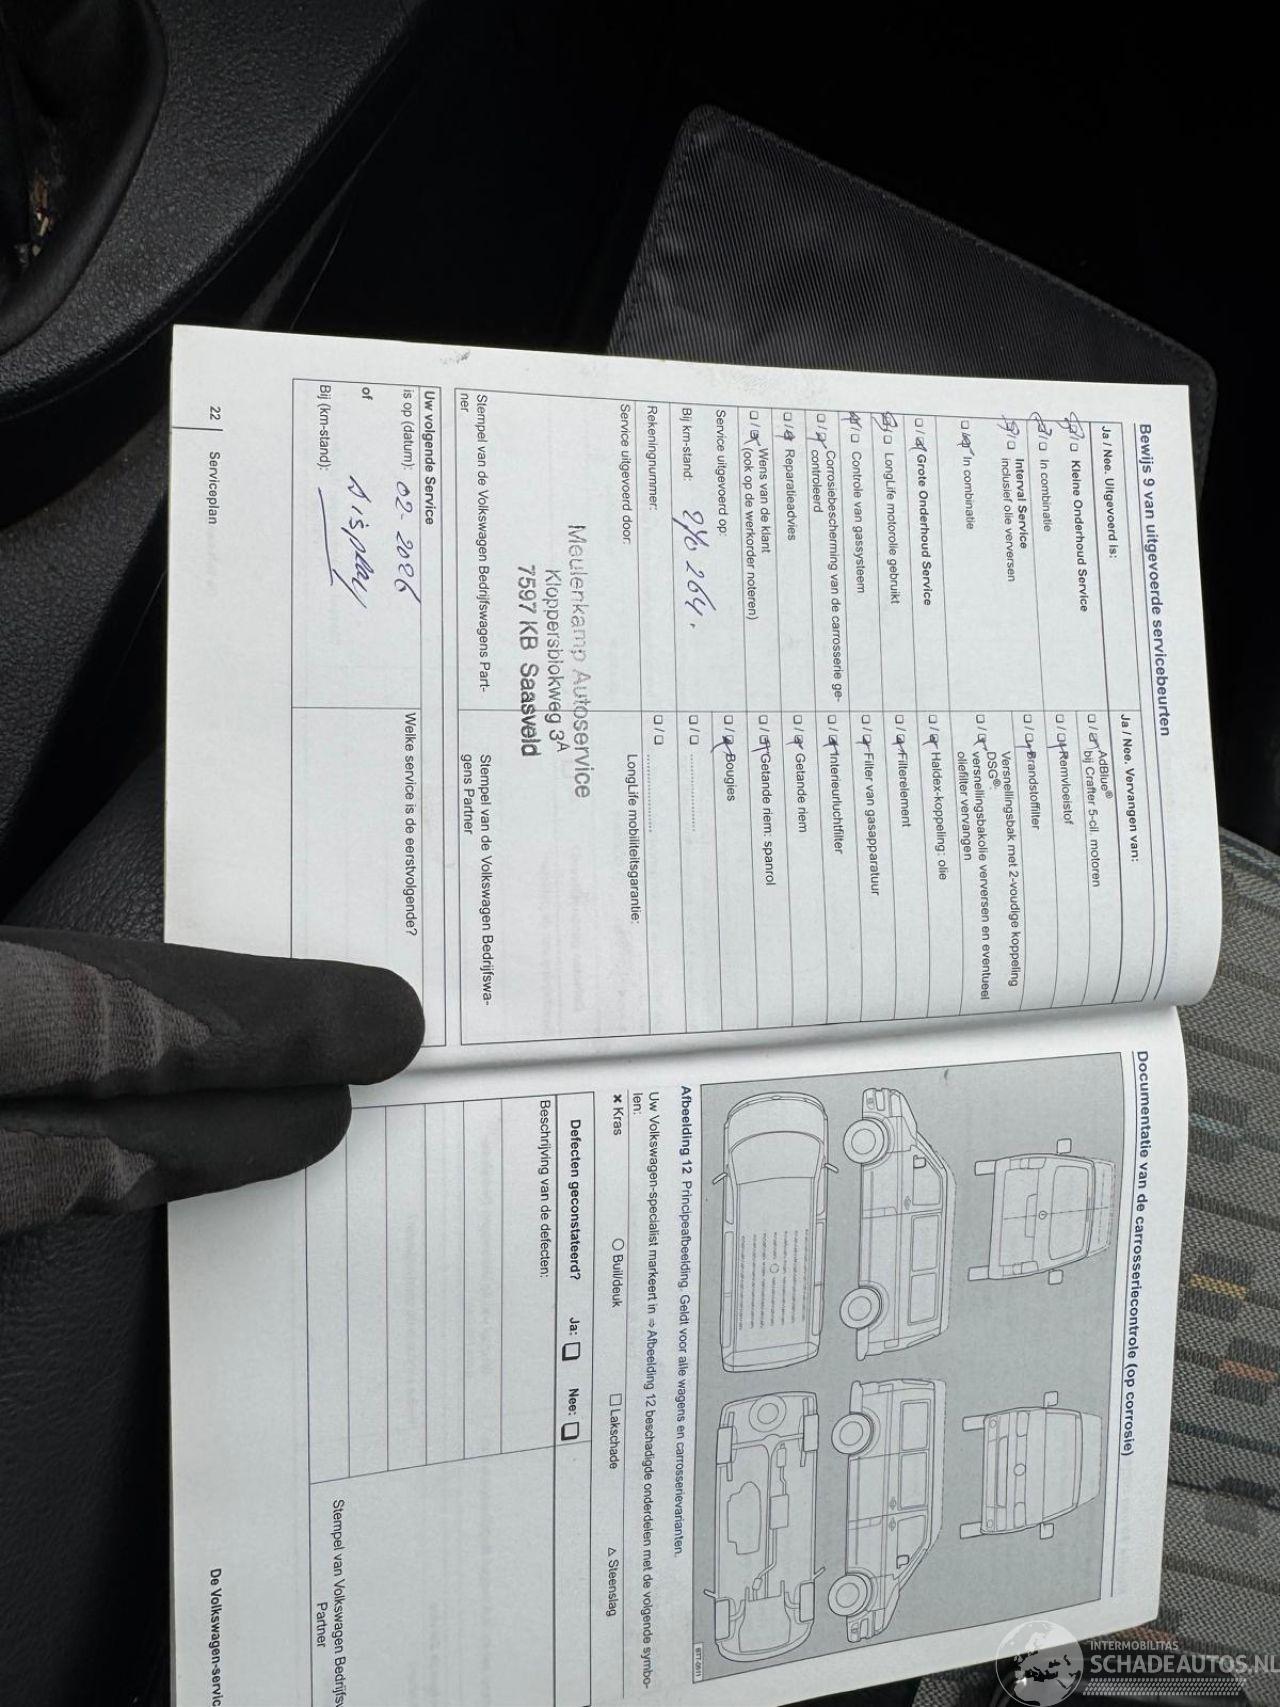 Bewijs 9 van uitgevoerde servicebeurten
Ja / Nee. Uitgevoerd is:
Kleine Onderhoud Service
In combinatie
Interval Service
inclusief olie verversen
In combinatie
Grote Onderhoud Service
LongLife motorolie gebruikt
Controle van gassysteem
Corrosiebescherming van de carrosserie ge-
controleerd
Reparatieadvies
Wens van de klant
(ook op de werkorder noteren)
Service uitgevoerd op:
Bij km-stand:
264.
Rekeningnummer:
Service uitgevoerd door:
Ja / Nee. Vervangen van:
AdBlue®
bij Crafter 5-cil. motoren
Remvloeistof
Brandstoffilter
Versnellingsbak met 2-voudige koppeling
DSG®:
versnellingsbakolie verversen en eventueel
oliefilter vervangen
Haldex-koppeling: olie
Filterelement
Filter van gasapparatuur
Interieurluchtfilter
Getande riem
Getande riem: spanrol
Bougies
LongLife mobiliteitsgarantie:
Meulenkamp Autoservice
Kloppersblokweg 3A
7597 KB Saasveld
Stempel van de Volkswagen Bedrijfswagens Part-
ner
Stempel van de Volkswagen Bedrijfswa-
gens Partner
Uw volgende Service
is op (datum): 02-2026
of display
Bij (km-stand):
Welke service is de eerstvolgende?
22 Serviceplan
Documentatie van de carrosseriecontrole (op corrosie)
BTT-0611
Afbeelding 12 Principeafbeelding. Geldt voor alle wagens en carrosserievarianten.
Uw Volkswagen-specialist markeert in ⇒ Afbeelding 12 beschadigde onderdelen met de volgende symbo-
len:
✖ Kras ○ Buil/deuk □ Lakschade △ Steenslag
Defecten geconstateerd? Ja: □ Nee: □
Beschrijving van de defecten:
Stempel van Volkswagen Bedrijfsw
Partner
De Volkswagen-servic
INTERMOBILITAS
SCHADEAUTOS.NL